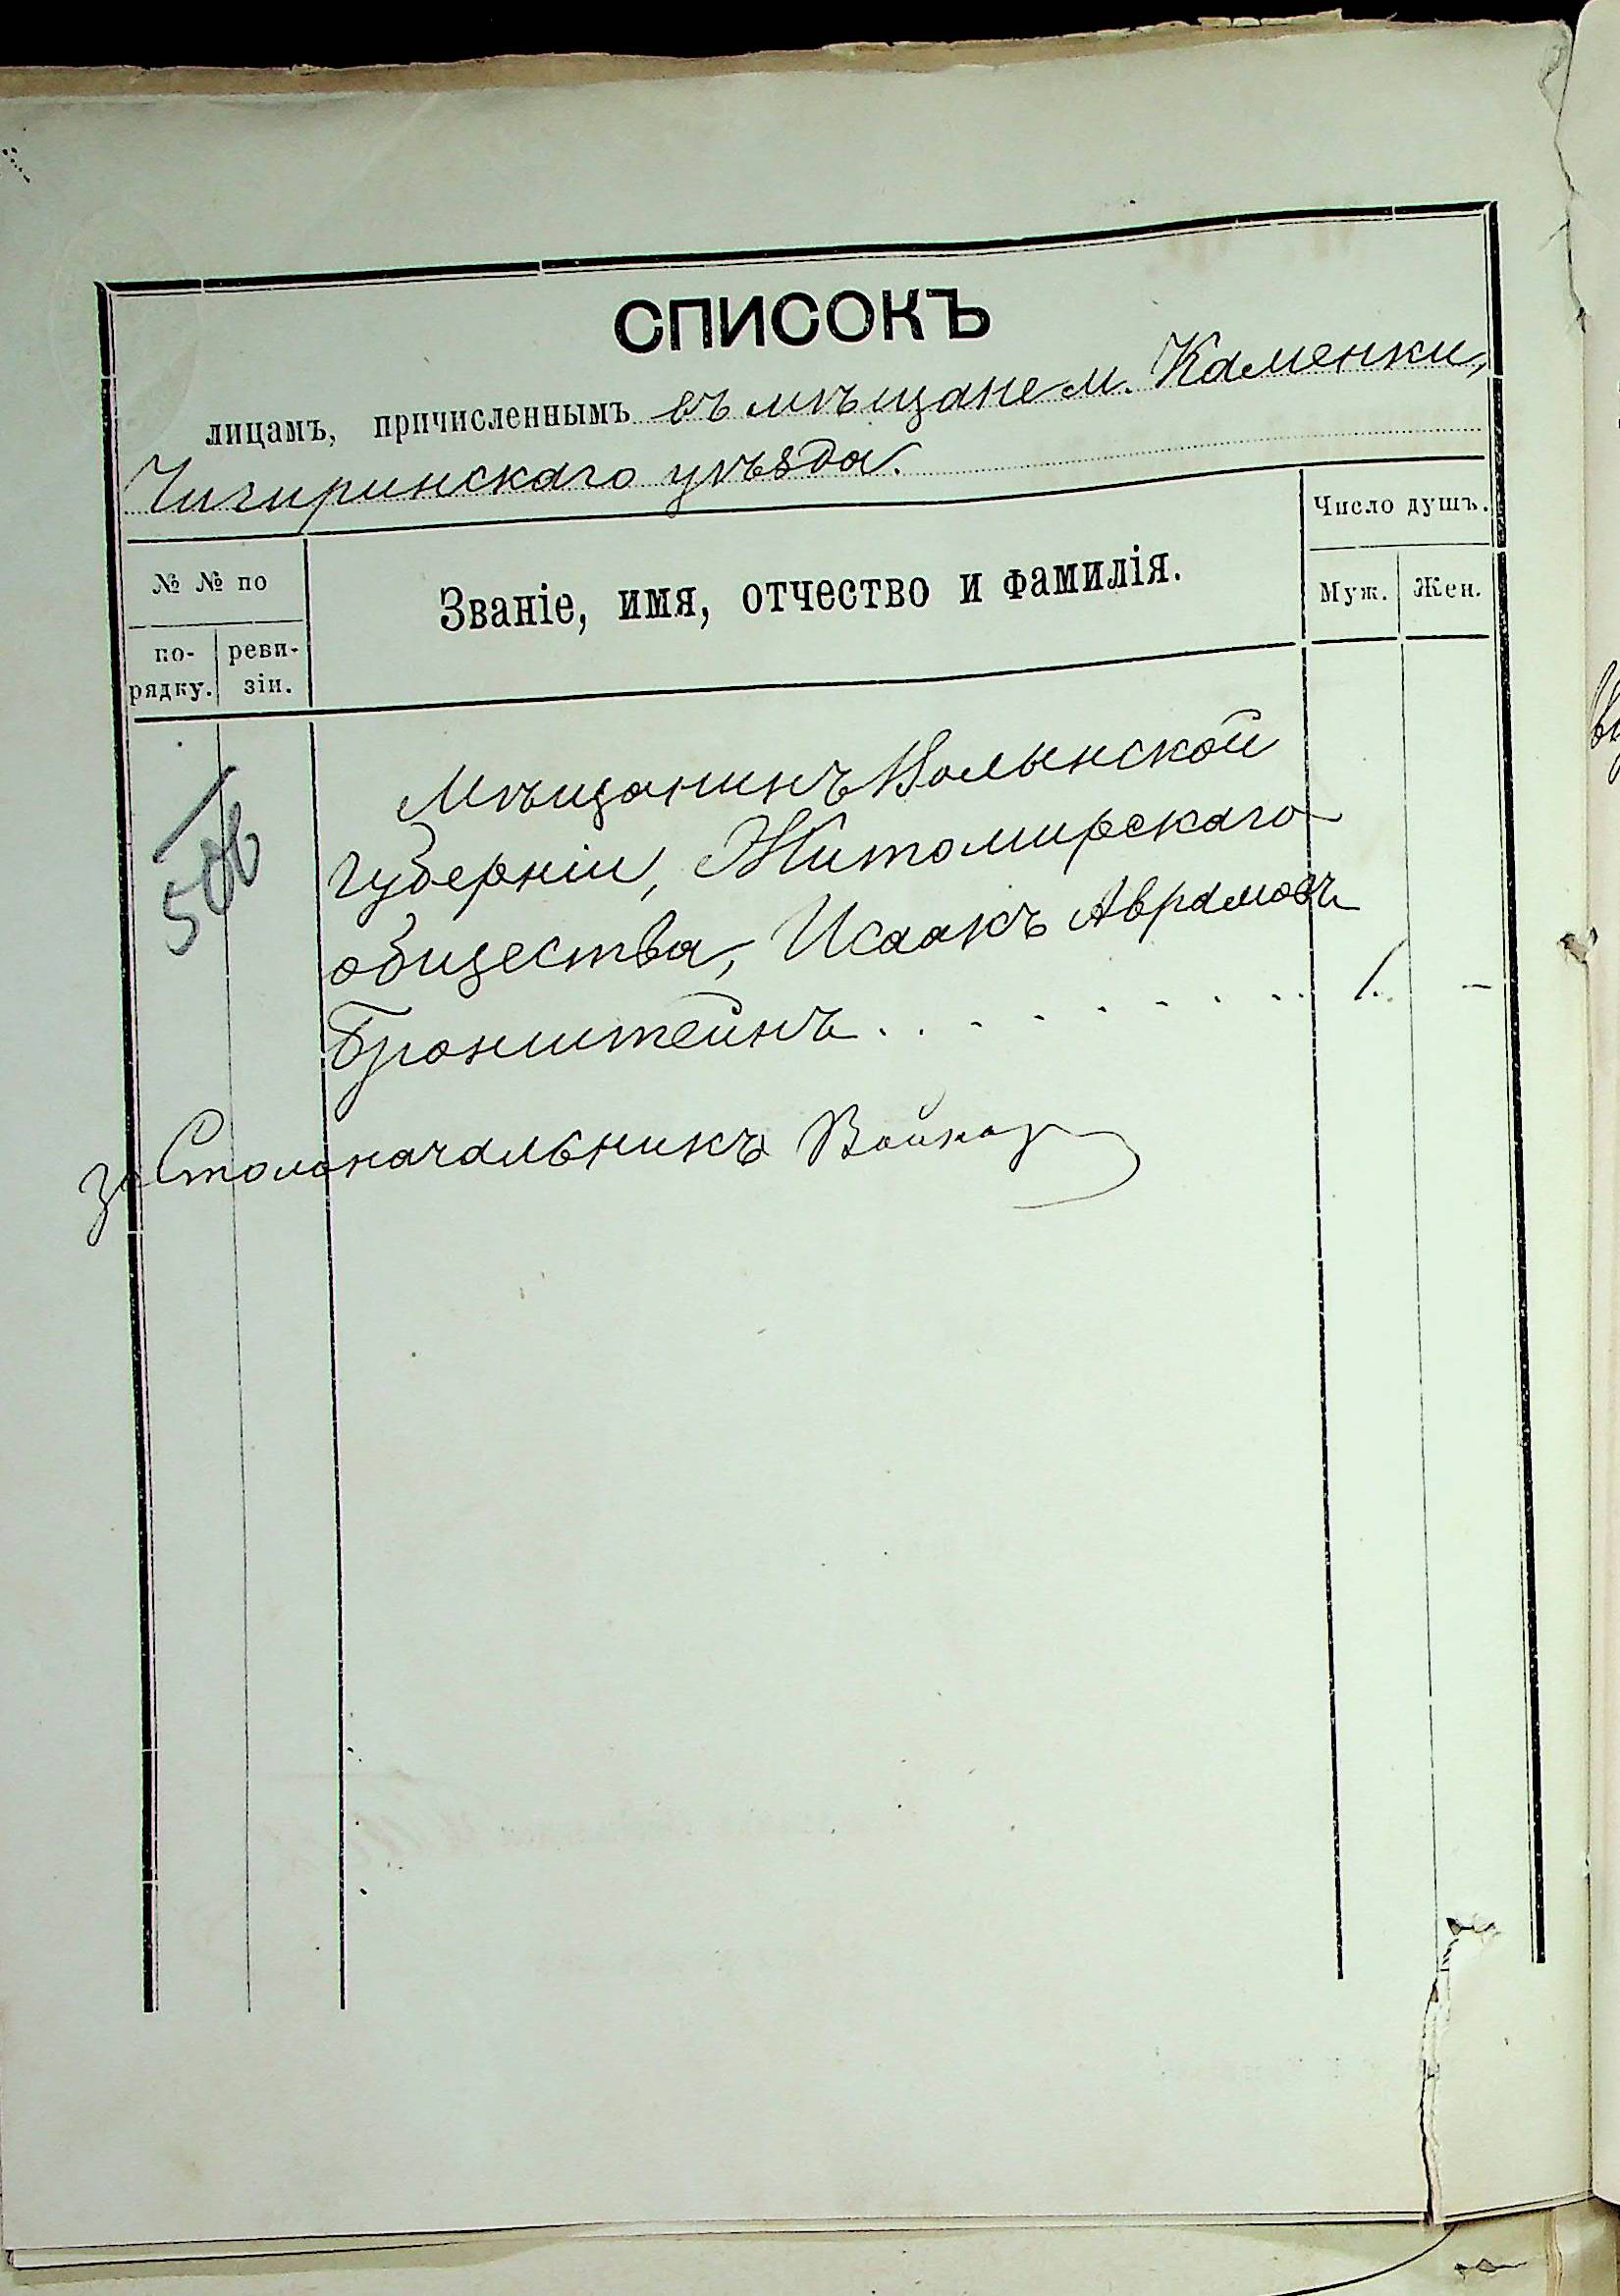 СПИСОКЪ
лицамъ, причисленнымъ въ мѣщане м. Каменки,
Чигиринскаго уѣзда.
№ № по
по-
рядку.
реви-
зіи.
Званіе, имя, отчество и фамилія.
Число душъ.
Муж.
Жен.
Мѣщанинъ Волынской
губерніи, Житомирскаго
общества, Исаакъ Аврамовъ
Бронштейнъ . . . . . . . . . 1. –
За Столоначальникъ